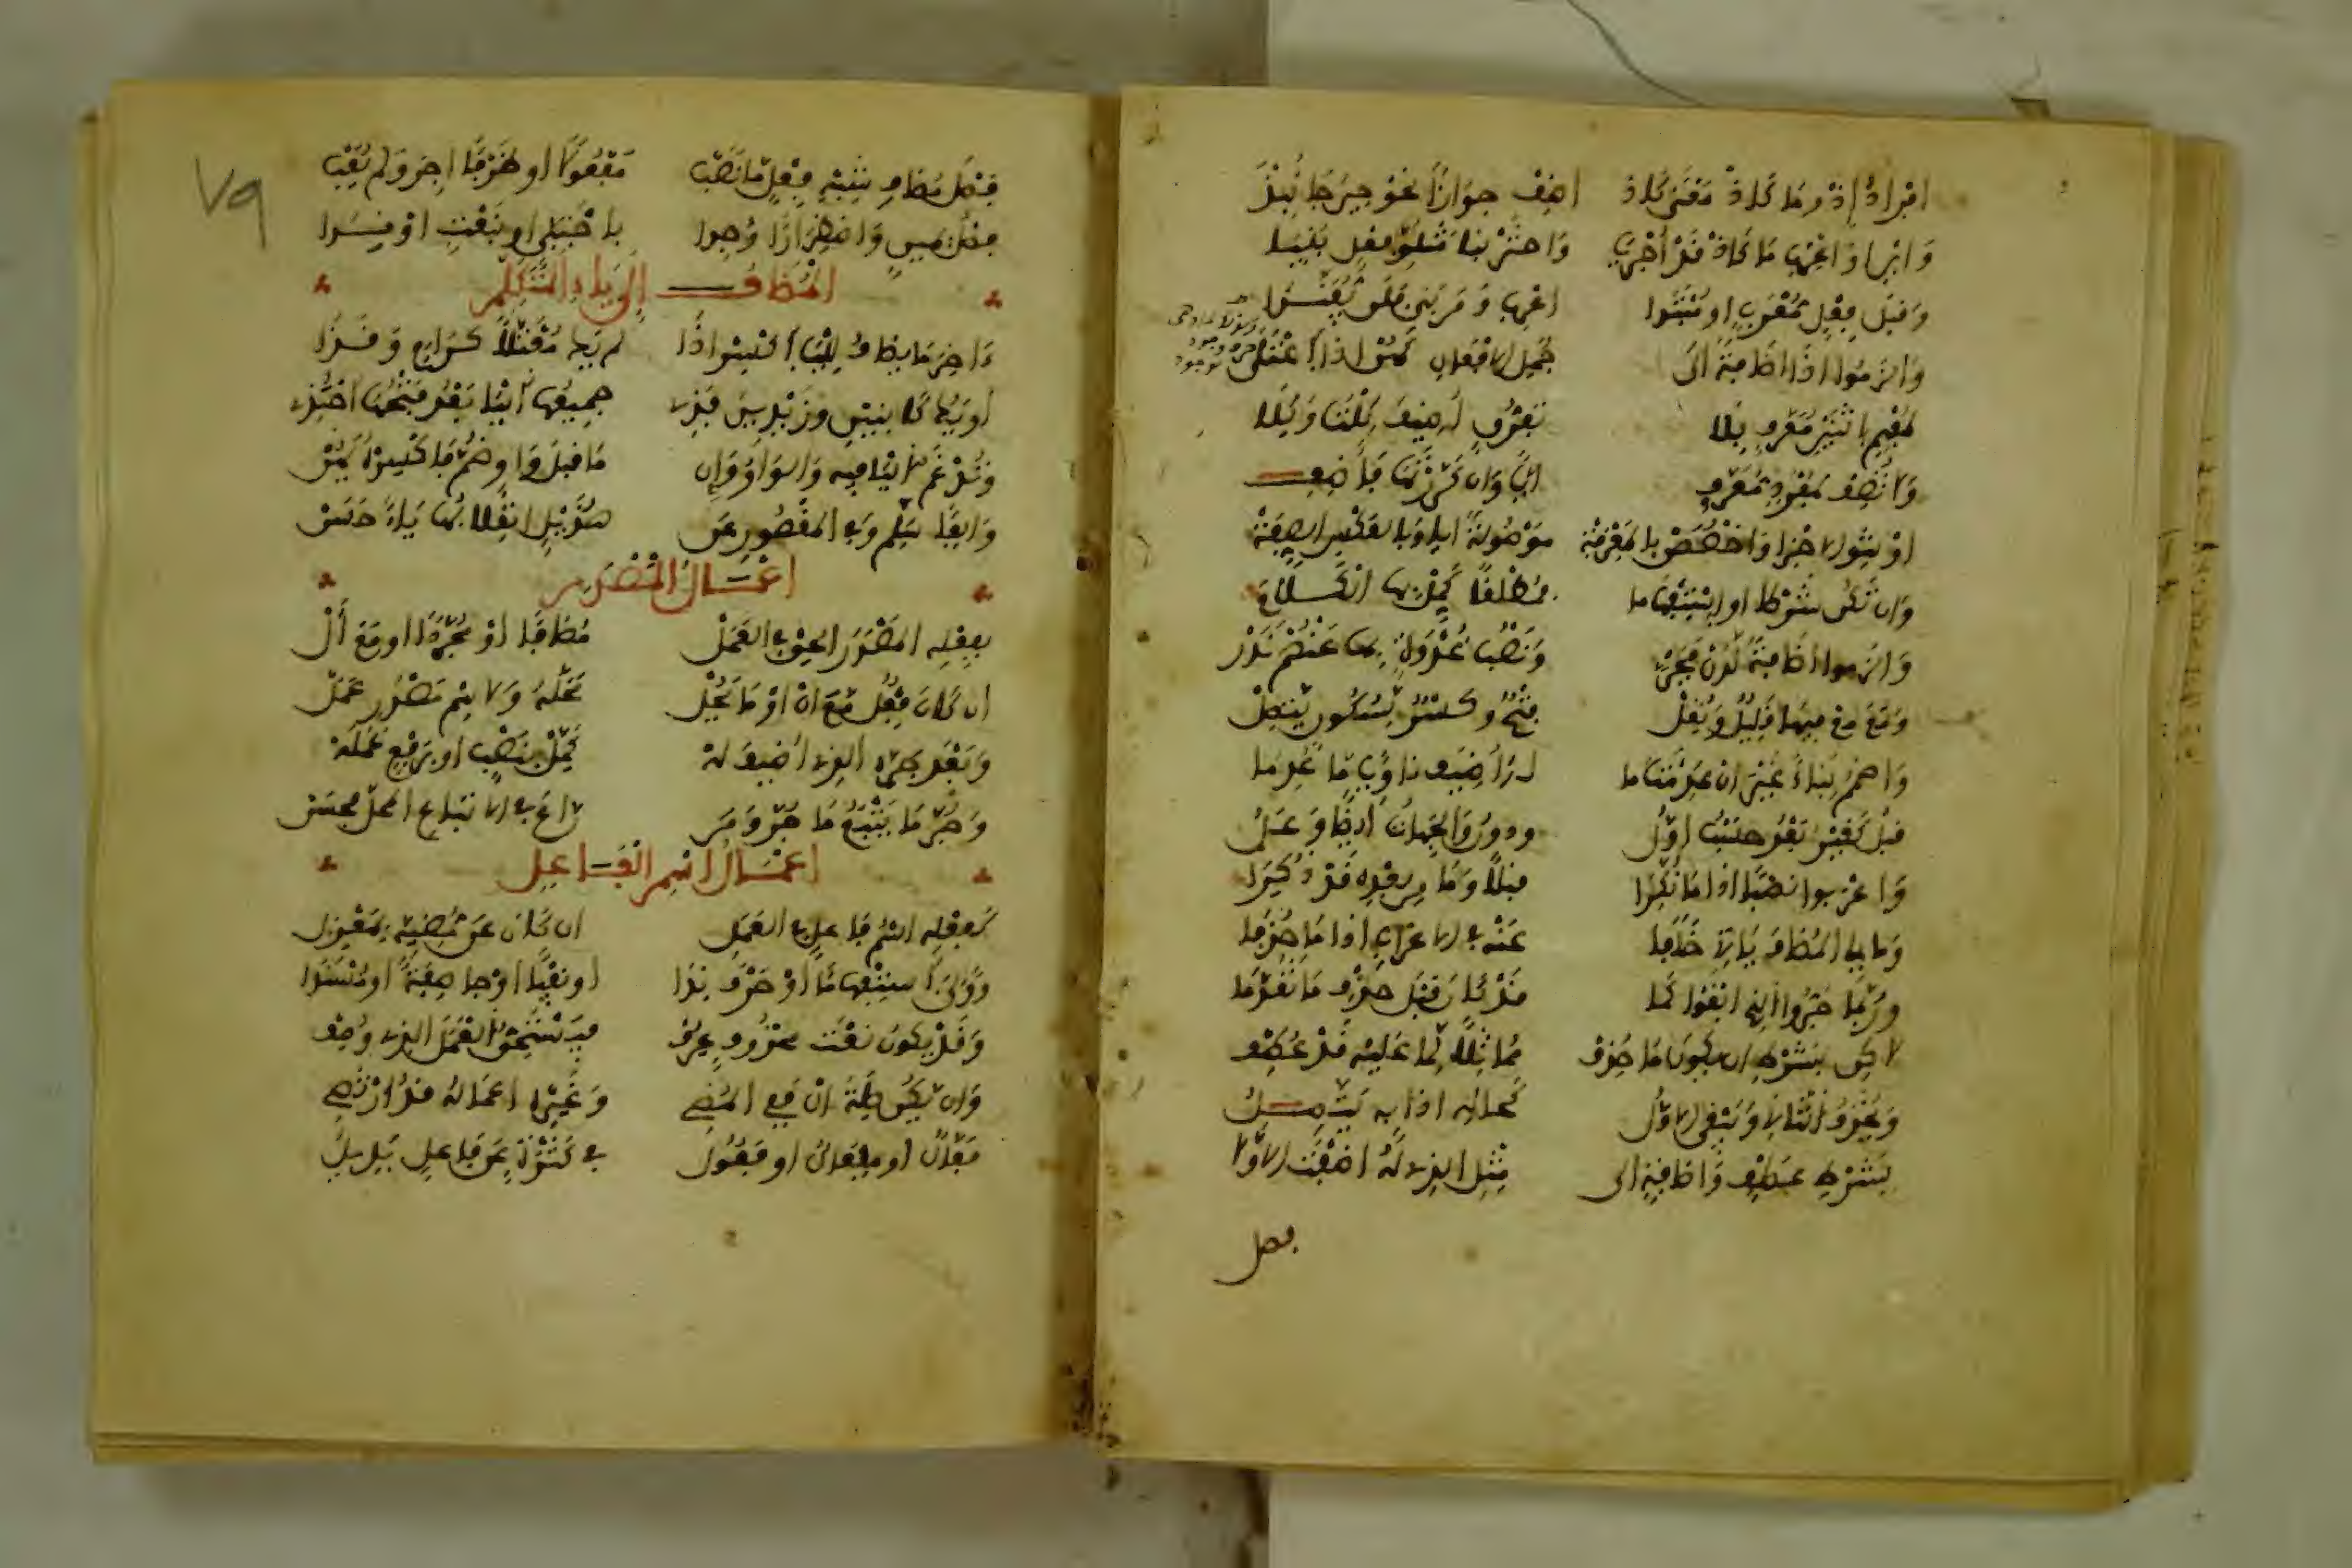 افراد إذ وما كإذ معنى كإذ اضف جوازا نحو حين جا نبذ
وابن او اعرب ما كإذ قد أجريا واختر بنا متلو فعل بنيا
وقبل فعل معرب او مبتدا اعرب ومن بنى فلن يفندا
والزموا اذا اظافة الى جمل الافعال كهن اذا اعتلى
لمفهم اثنين معرف بلا تفرق اضيف كلتا وكلا
ولا تضف لمفرد معرف ايا وان كررتها فاضف
او تنو الاجزا واخصصن بالمعرفه موصولة ايا وبالعكس الصفه
وان تكن شرطا او استفهاما فمطلقا كمل بها الكلاما
والزموا اظافة لدن فجر ونصب غدوة بها عنهم ندر
ومع مع فيها قليل ونقل فتح وكسر لسكون يتصل
واضمم بناء غيرا ان عدمت ما له اضيف ناويا ما عدما
قبل كغير بعد حسب اول ودون والجهات ايظا وعل
واعربوا نصبا اذا ما نكرا قبلا وما من بعده قد ذكرا
وما يلي المظاف ياتي خلفا عنه في الاعراب اذا ما حذفا
وربما جروا الذي ابقوا كما قد كان قبل حذف ما تقدما
لاكن بشرط ان يكون ما حذف مماثلا لما عليه قد عطف
ويحذف الثاني ويبقى الاول كحاله اذا به يتصل
بشرط عطف واظافة الى مثل الذي له اضفت الاولا
فصل
٧٩
فصل مظاف شبه فعل ما نصب مفعولا او ظرفا اجز ولم يعب
فصل يمين واضطرارا وجدا باجنبي او بنعت او ندا
المظاف إلى ياء المتكلم
ءاخر ما يظاف لليا اكسر اذا لم يك معتلا كرام وقذا
او يك كابنين وزيدين فذي جميعها اليا بعد فتحها احتذي
وتدغم اليا فيه والواو وان ما قبل واو ضم فاكسره يهن
والفا سلم وفي المقصور عن هذيل انقلابها ياء حسن
اعمال المصدر
بفعله المصدر الحق في العمل مظافا او مجردا او مع أل
ان كان فعل مع ان او ما يحل محله ولاسم مصدر عمل
وبعد جره الذي اضيف له كمل بنصب او برفع عمله
وجر ما يتبع ما جر ومن راعى في الاتباع المحل فحسن
اعمال اسم الفاعل
كفعله اسم فاعل في العمل ان كان عن مضيه بمعزل
وولي استفهاما او حرف ندا او نفيا او جا صفة او مسندا
وقد يكون نعت محذوف عرف فيستحق العمل الذي وصف
وان يكن صلة ال ففي المضي وغيره اعماله قد ارتضي
فعال او مفعال او فعول في كثرة عن فاعل بديل